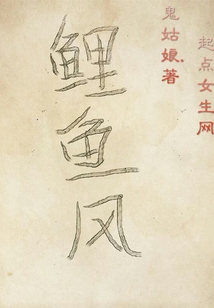 起点女生网
鬼姑娘著
鲤鱼风